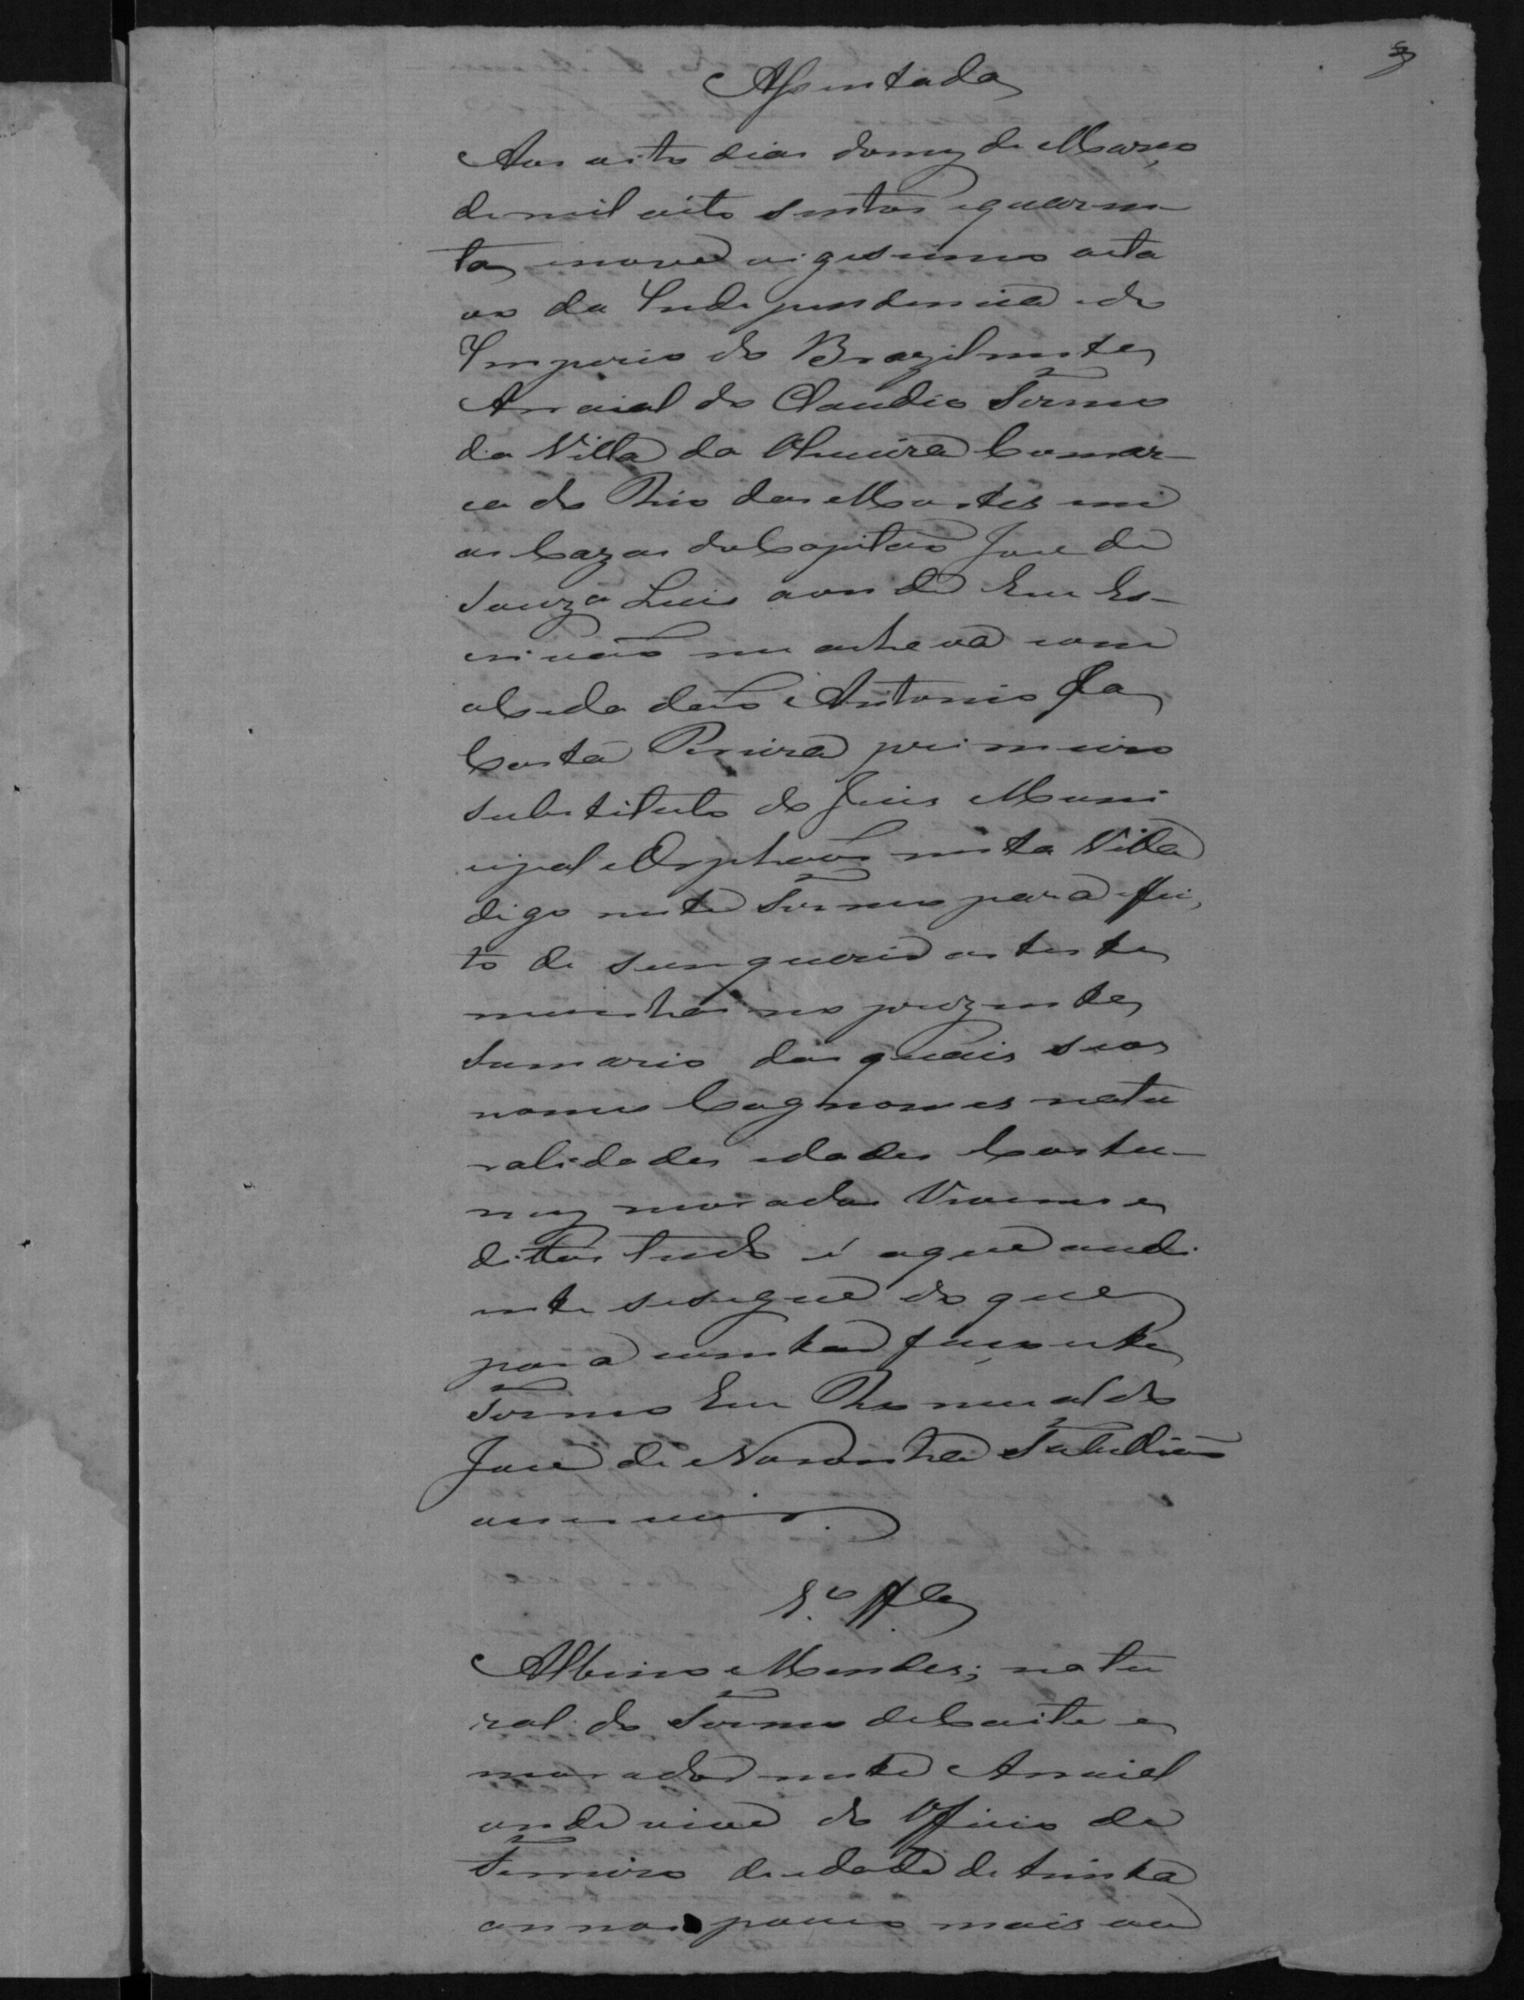 Assentada
Aos oito dias do mez de Março
de mil oito sentos e quaren-
ta, e nove vigesimo oita
vo da Independencia e do
Imperio do Brazil neste
Arraial do Claudio Termo
da Villa da Oliveira Comar-
ca do Rio das Mortes em
as Cazas do Capitão Jose de
Souza Luis aonde Eu Es-
crivão me achava com
o Cidadão Antonio da
Costa Pereira primeiro
substituto do Juis Muni
cipal e Orphaõs nesta Villa
digo neste Termo para effei
to de serem queridas teste
munhas no prezente
Sumario das quais seos
nomes Cognomes natu
ralidades idades Costu-
mez moradas Viveres e
dittos tudo é o que aodi
ente se segue do que
para constar faço este
Termo Eu Romualdo
José de Noronha Tabellião
o escrevi.
Albino Mendes; natu
ral do Termo de Caite e
morador neste Arraial
onde vive do Officio de
Ferreiro de idade de trinta
annos pouco mais ou